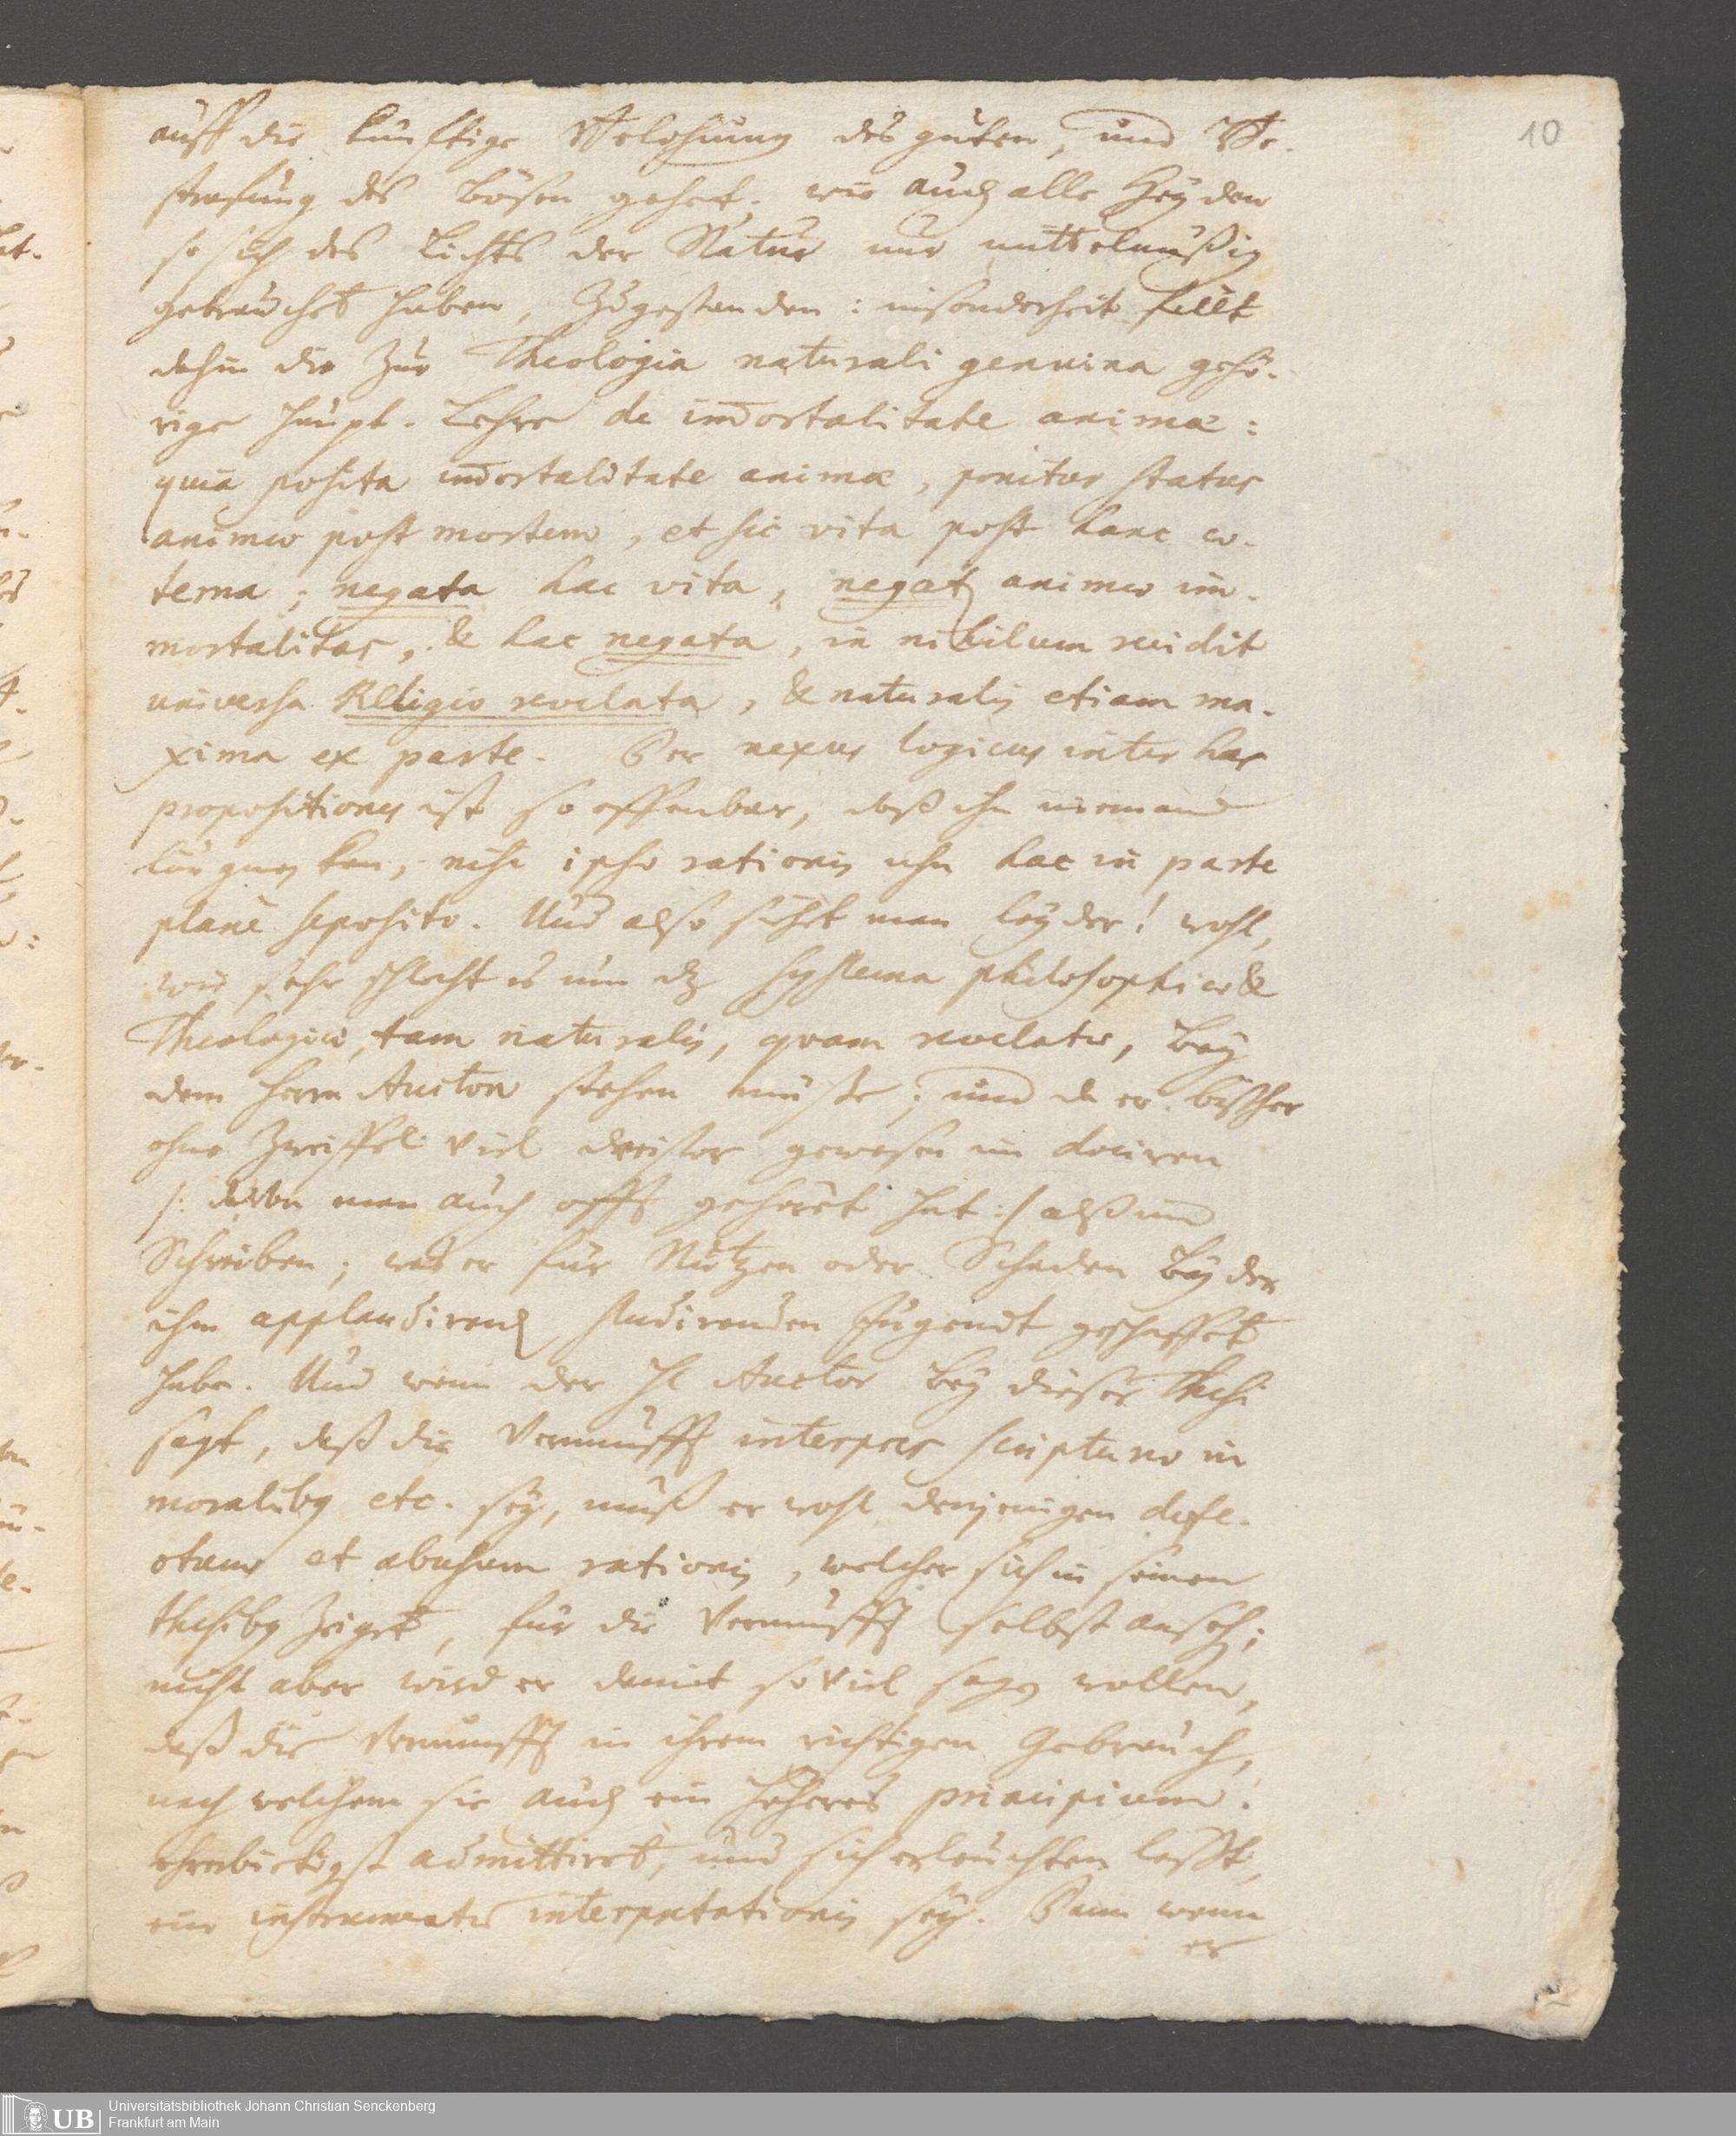 10
auff die künfftige Belohnung des guten, und Be-
strafung des bösen gehet, wie auch alle Heyden
so sich des Lichts der Natur nur mittelmäßig
gebrauchet haben, zugestanden: insonderheit fället
dahin die zur Theologia naturali genuina gehö-
rige Haupt-Lehre de im̅ortalitate animæ:
quia posita im̅ortalitate animæ, ponitur status
animæ post mortem, et sic vita post hanc æ-
terna; negata hac vita, negat animæ im-
mortalitas, & hac negata, in nihilum recidit
universa Religio revelata, & naturalis etiam ma-
xima ex parte. Der nexus logicus inter has
propositiones ist so offenbar, daß ihn niemand
läugnen kan, nisi ipso rationis usu hac in parte
planè seposito. Und also siehet man leyder! wohl,
wie sehr schlecht es um dz systema philosophiæ &
Theologiæ, tam naturalis, quam revelatæ, bey
dem Herrn Auctore stehen müße; und da er bißher
ohne Zweiffel viel dreister gewesen im dociren
/: davon man auch offt gehöret hat :/ alß im
Schreiben; was er für Nutzen oder Schaden bey der
ihm applaudirenden studirenden Jugendt geschaffet
habe. Und wenn der H. Auctor bey dieser Thesi
sagt, daß die Vernunfft interpres scripturæ in
moralibus etc. sey, muß er wohl denjenigen defe-
ctum et abusum rationis, welcher sich in seinen
thesibus zeiget, für die Vernunfft selbst ansehen;
nicht aber wird er damit so viel sagen wollen,
daß die Vernunfft in ihrem richtigen Gebrauch,
nach welchem sie auch ein höheres principium
ehrerbietigst admittiret, und sich erleuchten lässt,
ein interpretationis sey. Dann wenn
er
UB
Universitätsbibliothek Johann Christian Senckenberg
Frankfurt am Main